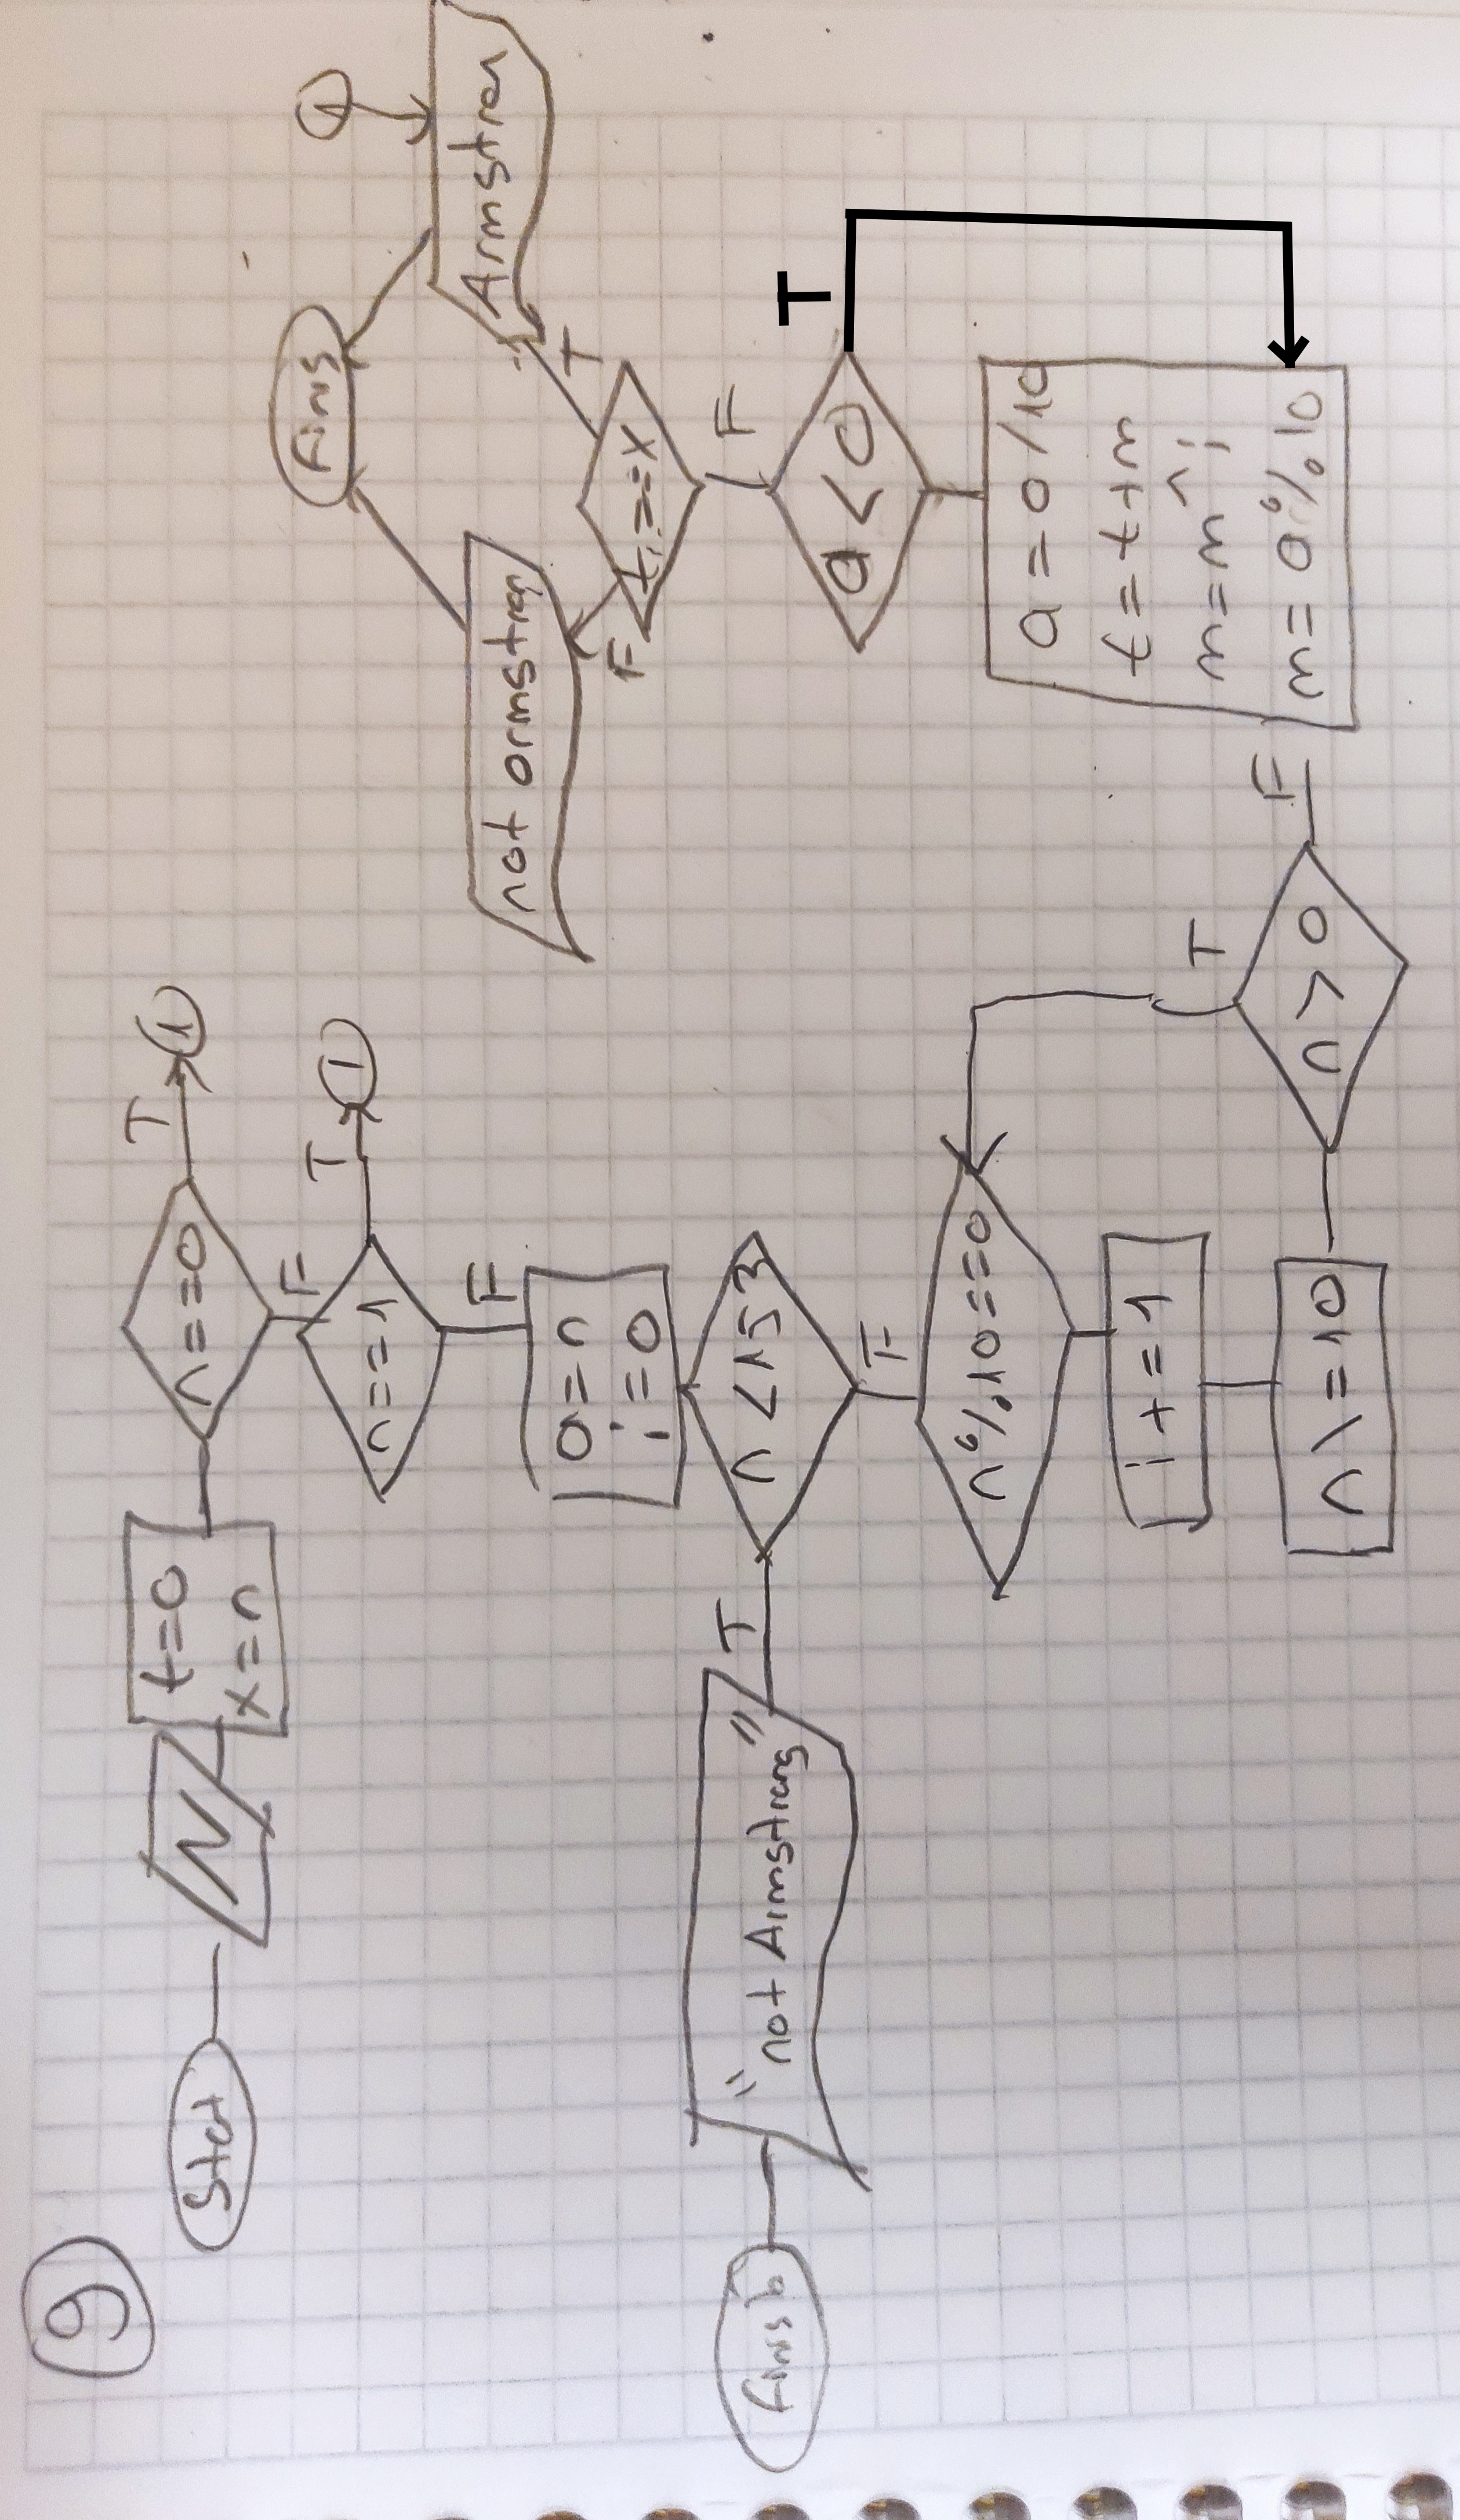 9
Stat
N
t=0
x=n
n==0
T
1
F
n==1
T
1
F
a=n
i=0
n<153
T
"not Armstrong"
Finish
F
n%10==0
i+=1
n\=10
n>0
T
F
m=a%10
m=m^i
t=t+m
a=a/10
a<0
T
F
t==x
F
T
not armstron
Armstron
1
Finis